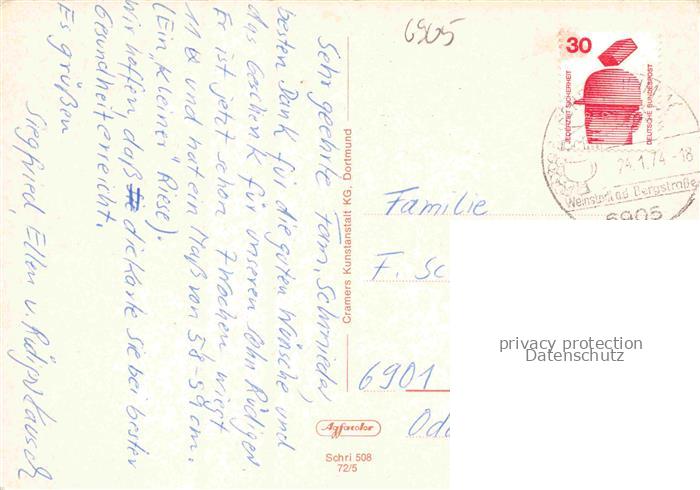 Sehr geehrte Fam. Schmieder,
besten Dank für die guten Wünsche und
das Geschenk für unseren Sohn Rüdiger.
Er ist jetzt schon 7 Wochen, wiegt
11 ℔ und hat ein Maß von 58-59 cm.
(Ein "kleiner" Riese).
Wir hoffen, daß die Karte sie bei bester
Gesundheit erreicht.
Es grüßen
Siegfried, Ellen u. Rüdiger
Cramers Kunstanstalt KG, Dortmund
6905
30
JEDERZEIT SICHERHEIT
DEUTSCHE BUNDESPOST
24.1.74-18
Weinstadt a.d. Bergstraße
6905
Familie
F. Sc
6901
privacy protection
Datenschutz
Agfacolor
Schri 508
72/5